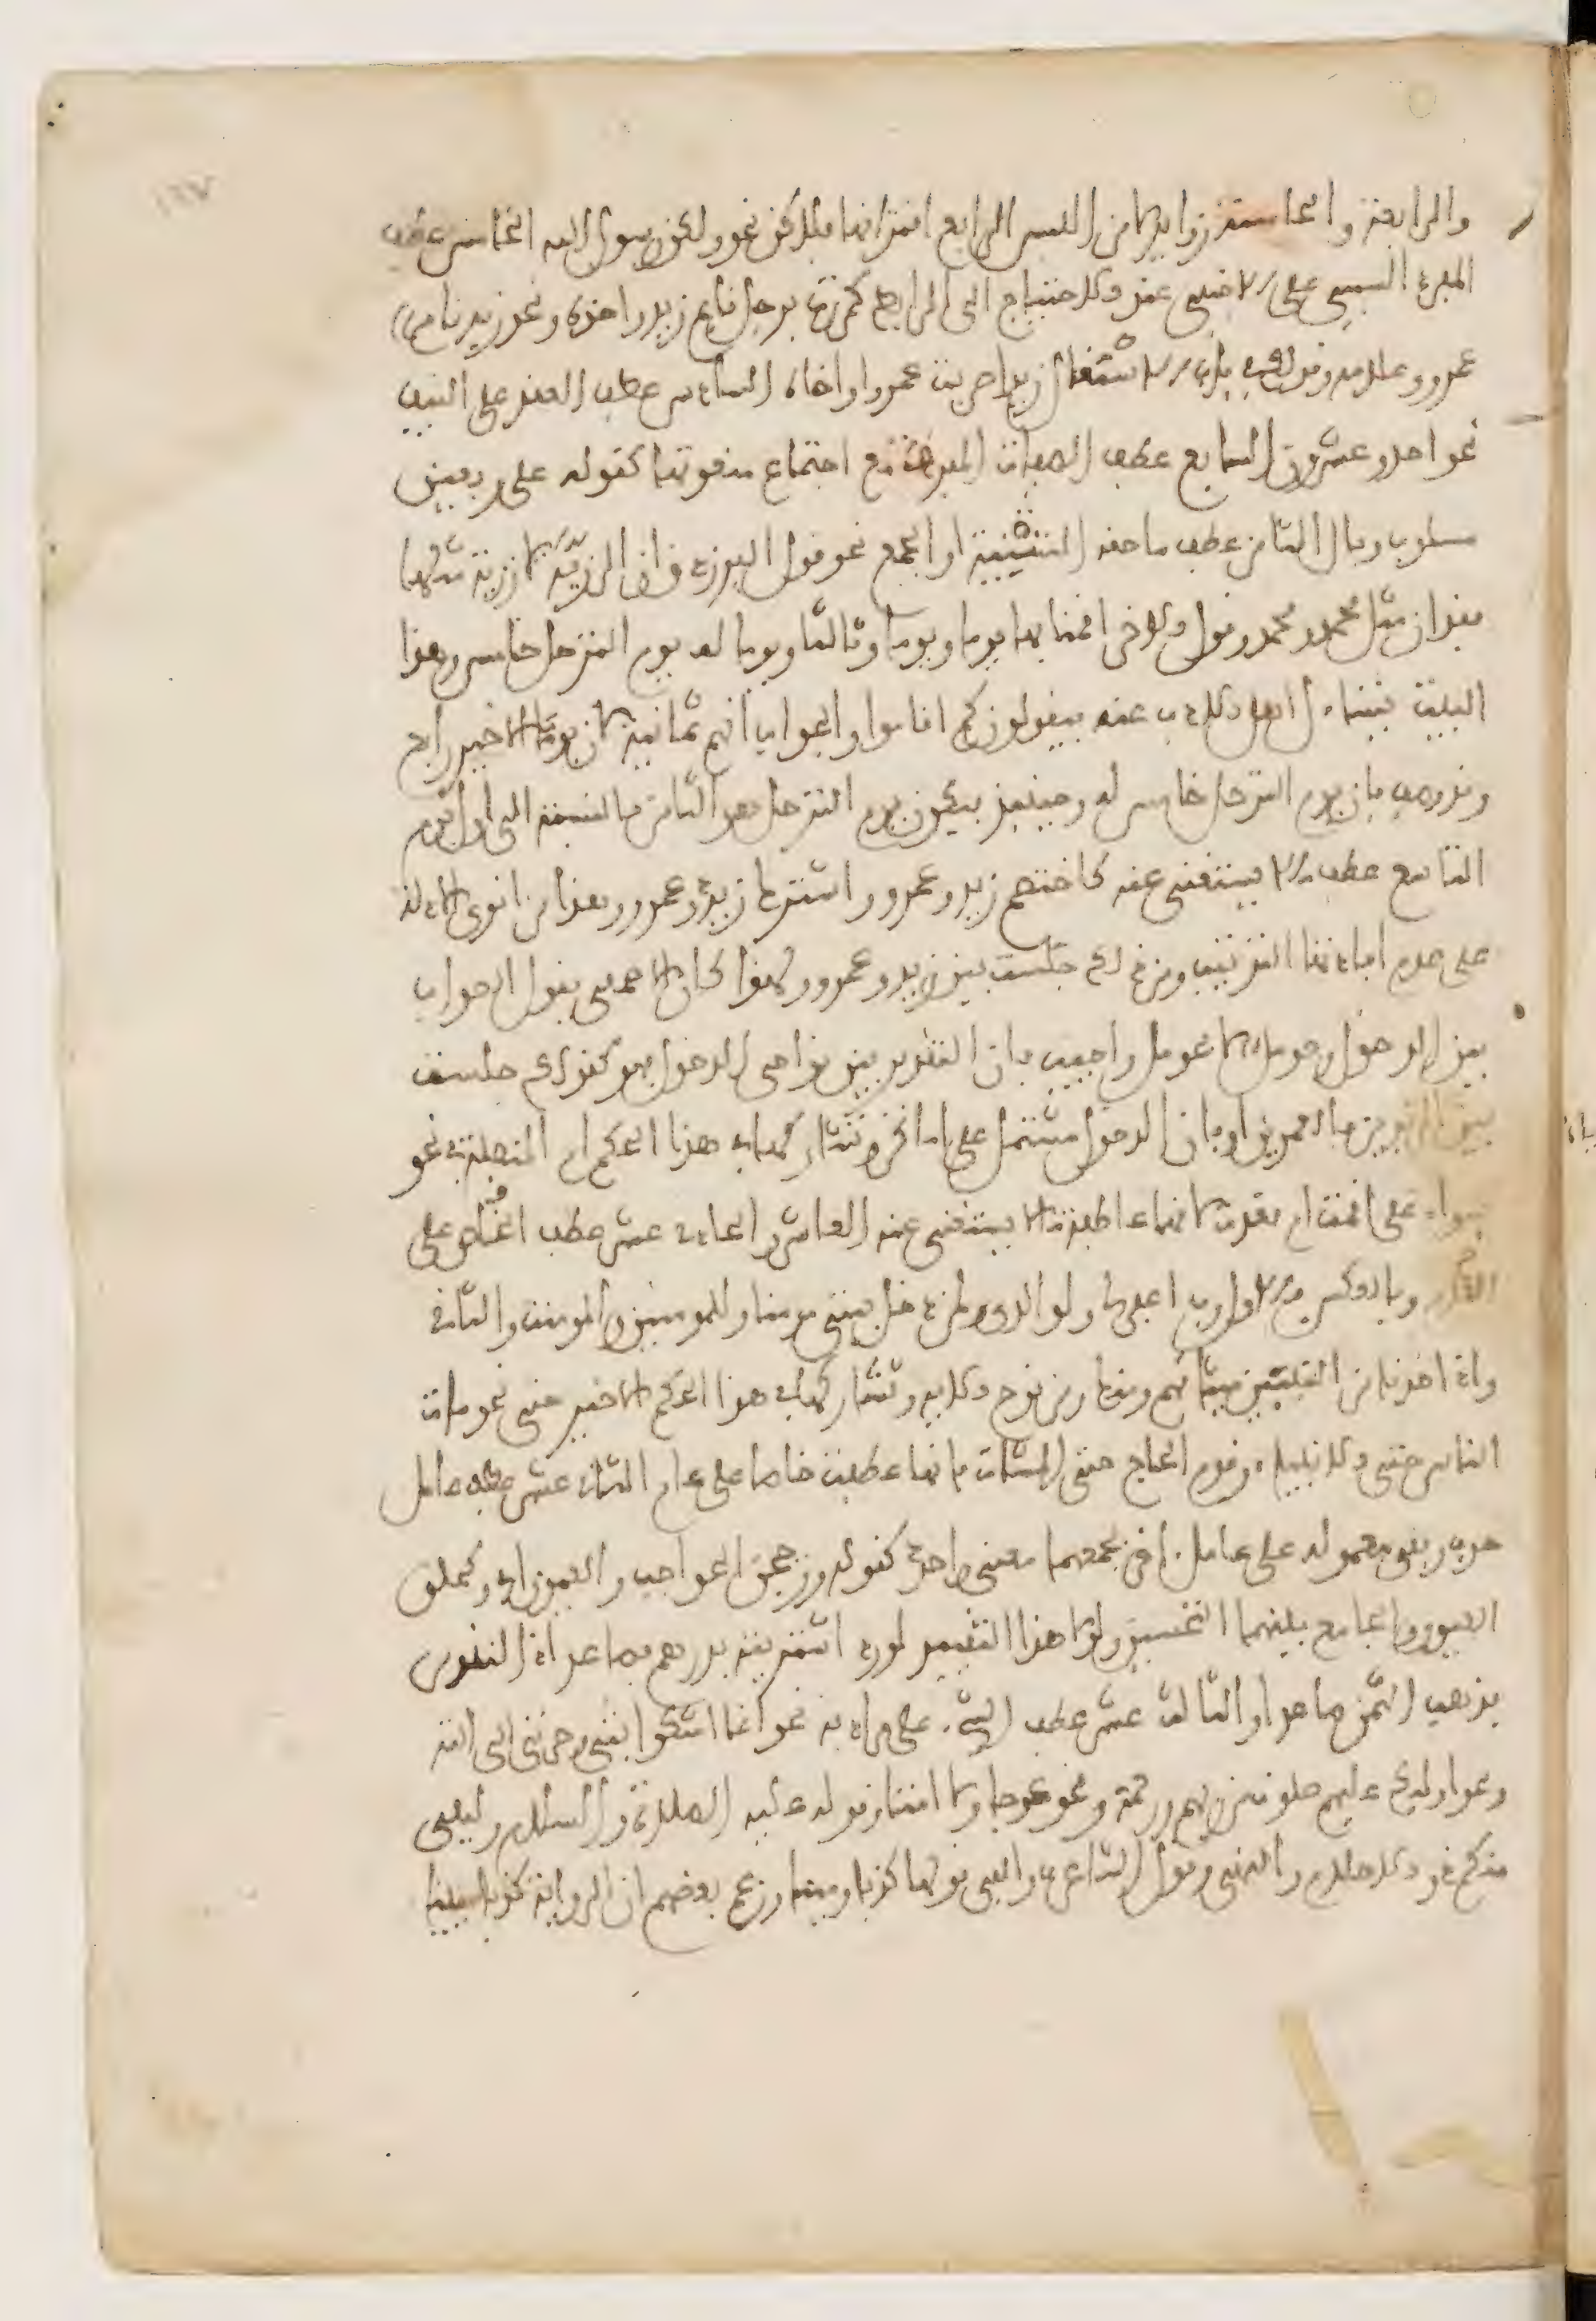 والرابعة والخامسة زوايد لامن اللبس الرابع اقترانها بلاكن نحو ولكن رسول الله الخامس عطف
المفرد السببي على الاجنبي عند الاحتياج الى الرابط كمررت برجل قايم زيد واخوه ونحو زيد قايم
عمرو وغلامه وقولك في باب الاشتغال زيدا ضربت عمرا واخاه السادس عطف العقد على النيف
نحو احد وعشرون السابع عطف الصفات المفرقة مع اجتماع منعوتها كقوله على ربعين
مسلوب وبال الثامن عطف ما حقه التثنية او الجمع نحو قول الفرزدق ان الرزية لا رزية مثلها
فقدان مثل محمد ومحمد وقول الاخر اقمنا بها يوما ويوما وثالثا ويوما له يوم الترحل خامس وهذا
البيت يتساءل اهل الادب عنه فيقولون كم اقاموا والجواب انهم ثمانية لان يوما الاخير رابع
وقد وصف بان يوم الترحل خامس له وحينئذ فيكون يوم الترحل هو الثامن بالنسبة الى اول يوم
التاسع عطف ما لا يستغنى عنه كاختصم زيد وعمرو واشترك زيد وعمرو وهذا من اقوى الادلة
على عدم افادتها الترتيب ومن ذلك جلست بين زيد وعمرو ولهذا كان الاصمعي يقول الصواب
بين الدخول وحومل لا فحومل واجيب بان التقدير بين نواحي الدخول فهو كقولك جلست
بين الزيدين فالعمرين او بان الدخول مشتمل على اماكن وتشاركها في هذا الحكم ام المتصلة في نحو
سواء على اقمت ام قعدت لانها عاطفة ما لا يستغنى عنه العاشر والحادي عشر عطف الخاص على
العام وبالعكس فالاول رب اغفر لي ولوالدي ولمن دخل بيتي مومنا وللمومنين والمومنت والثاني
واذ اخذنا من النبيئين ميثاقهم ومنك ومن نوح الاية وتشاركها في هذا الحكم الاخير حتى نحو مات
الناس حتى الانبياء وقدم الحاج حتى المشاة فانها عطفت خاصا على عام الثاني عشر عطف عامل
حذف وبقي معموله على عامل اخر يجمعهما معنى واحد كقوله وزججن الحواجب والعيونا اي وكحلن
العيون والجامع بينهما التحسين ولولا هذا التقييد لورد اشتريته بدرهم فصاعدا اذ التقدير
فذهب الثمن صاعدا والثالث عشر عطف الشيء على مرادفه نحو انما اشكوا بثي وحزني الى الله
ونحو اوليك عليهم صلوت من ربهم ورحمة ونحو عوجا ولا امتا وقوله عليه الصلاة والسلام وليلني
منكم ذو والاحلام والنهى وقول الشاعر والفى قولها كذبا ومينا وزعم بعضهم ان الرواية كذبا مبينا